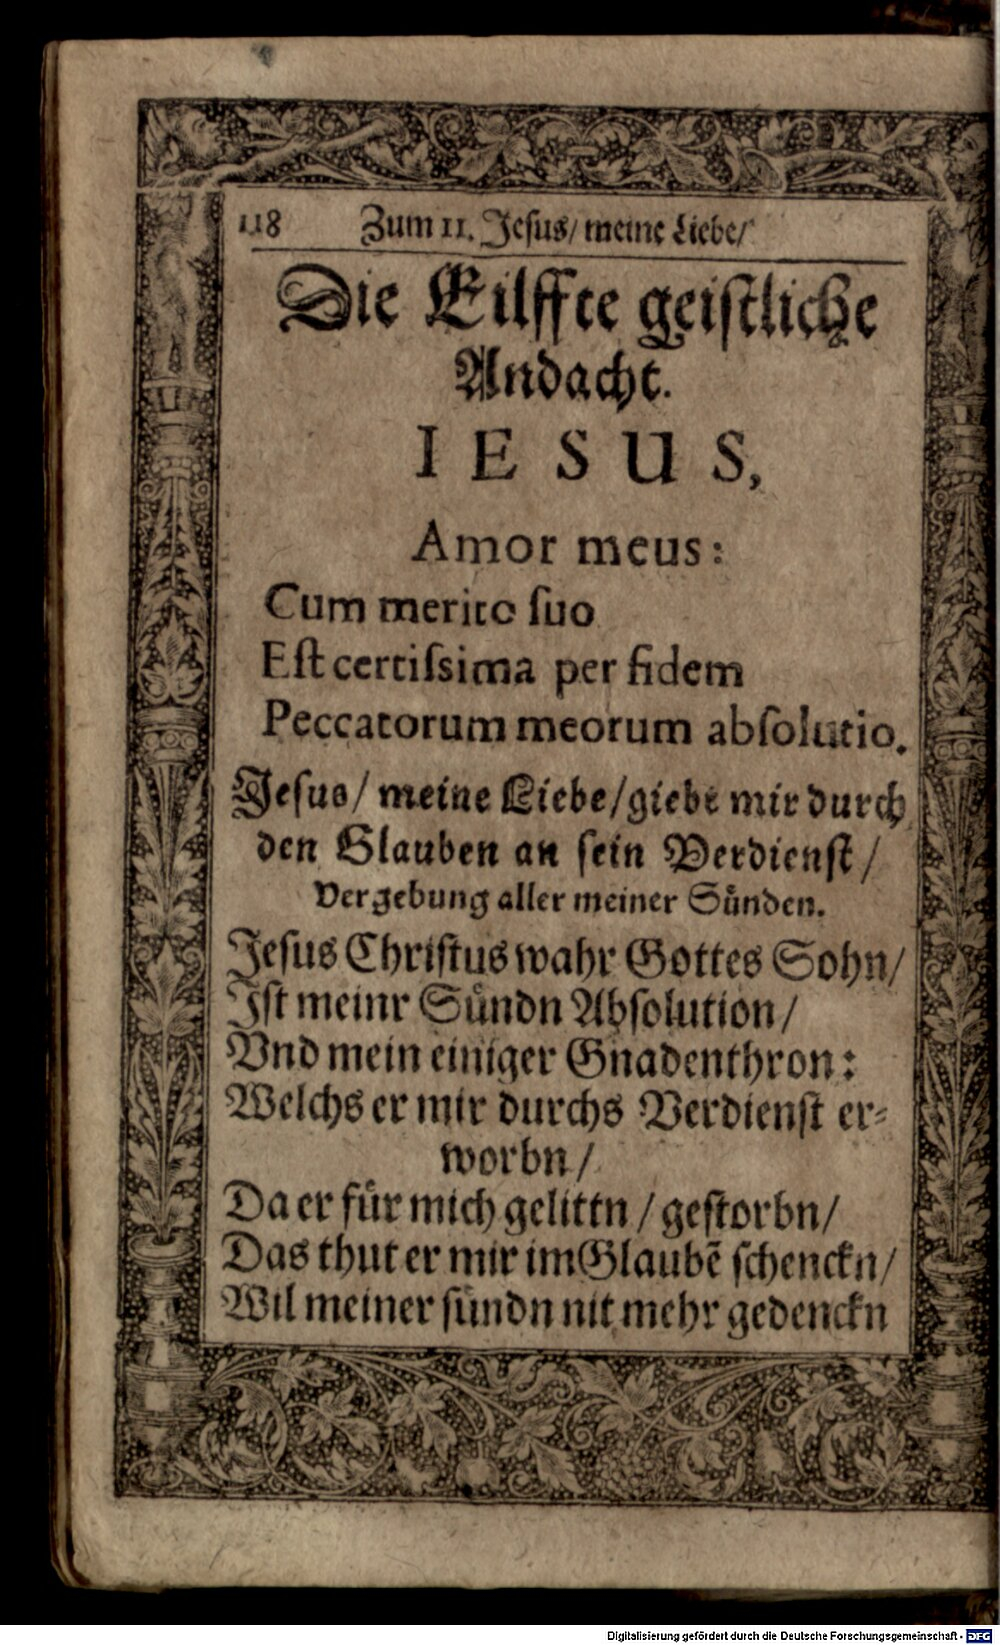 118 Zum 11. Jesus/ meine Liebe/
Die Eilffte geiſtliche
Andacht.
IESUS,
Amor meus:
Cum merito ſuo
Eſt certiſsima per fidem
Peccatorum meorum abſolutio.
Jeſus/ meine Liebe/giebt mir durch
den Glauben an ſein Verdienſt/
Vergebung aller meiner Suͤnden.
Jeſus Chriſtus wahr Gottes Sohn/
Iſt meinr Suͤndn Abſolution/
Vnd mein einiger Gnadenthron:
Welchs er mir durchs Verdienſt er⸗
worbn/
Da er fuͤr mich gelittn/ geſtorbn/
Das thut er mir im Glaubẽ ſchenckn/
Wil meiner ſuͤndn nit mehr gedenckn
Digitalisierung gefördert durch die Deutsche Forschungsgemeinschaft - DFG